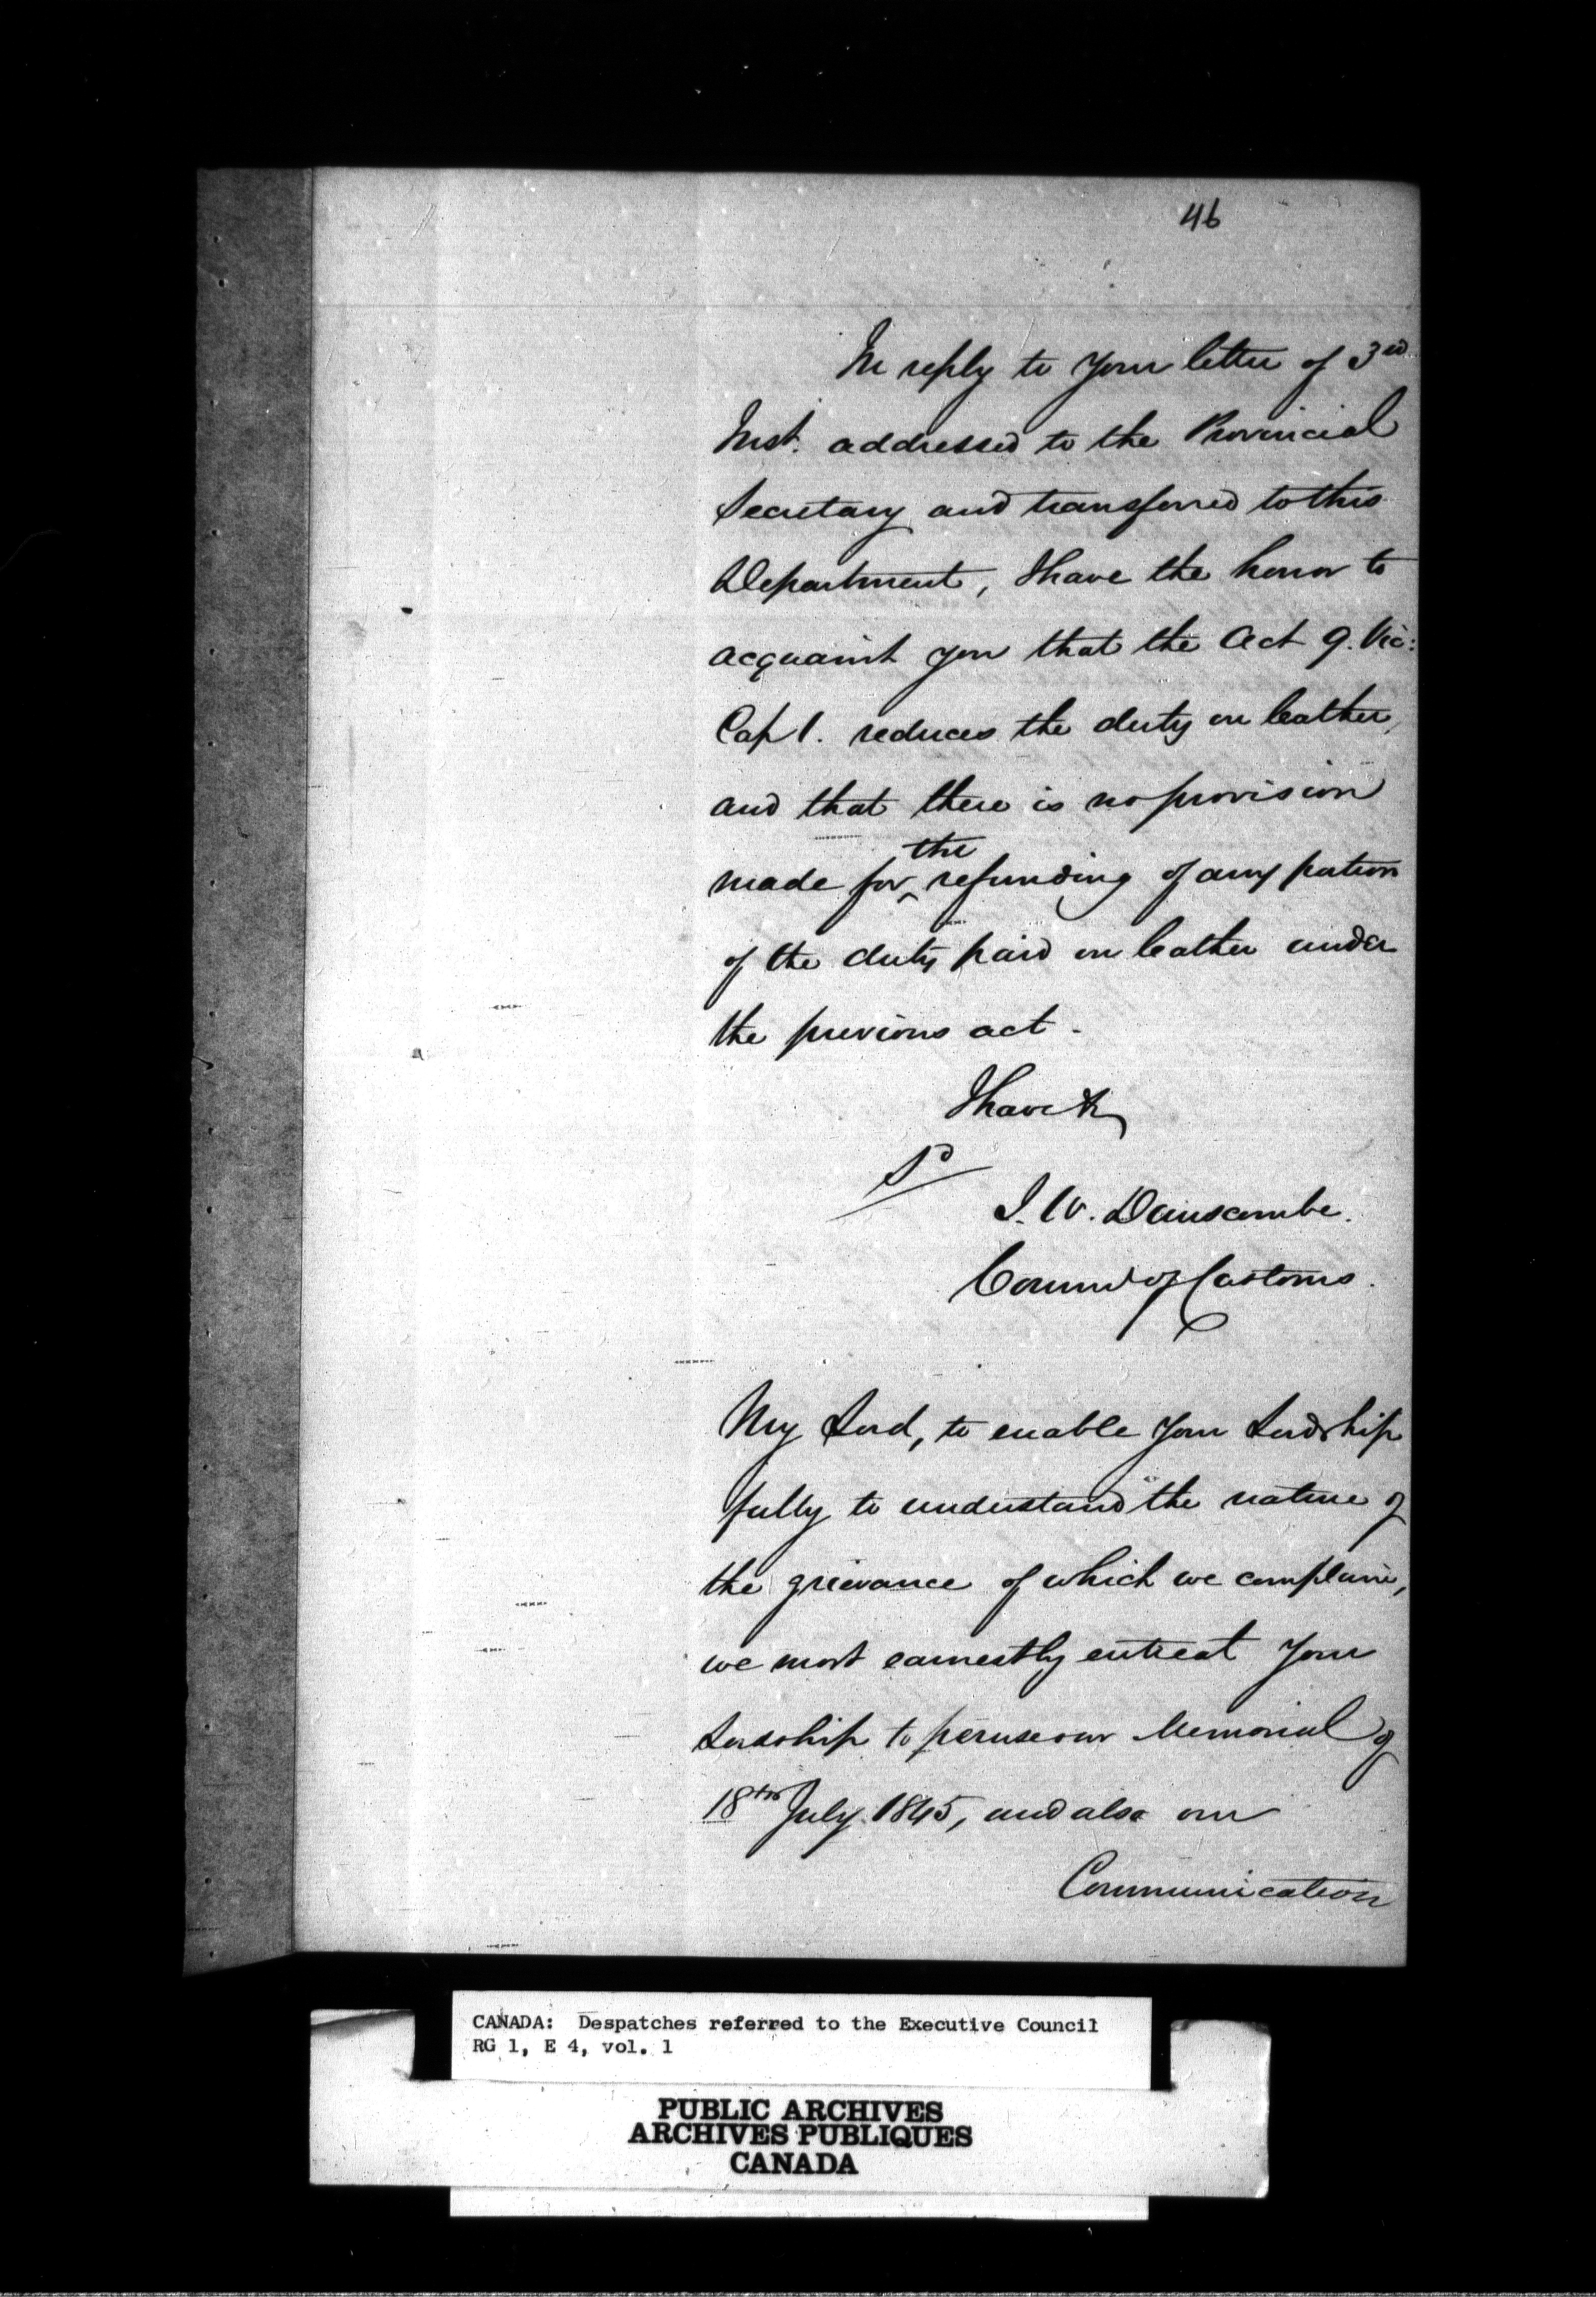 46
In reply to your letter of 3rd
Inst. addressed to the Provincial
Secretary and transferred to this
Department, I have the honor to
acquaint you that the Act 9. Vic:
Cap 1. reduces the duty on leather,
and that there is no provision
the
made for ^ refunding of any portion
of the duty paid on leather under
the previous act.
I have &c
Sd
J. W. Dunscombe.
Commr of Customs.
My Lord, to enable your Lordship
fully to understand the nature of
the grievance of which we complain,
we most earnestly entreat your
Lordship to peruse our Memorial of
18th July 1845, and also our
Communication
CANADA: Despatches referred to the Executive Council
RG 1, E 4, vol. 1
PUBLIC ARCHIVES
ARCHIVES PUBLIQUES
CANADA